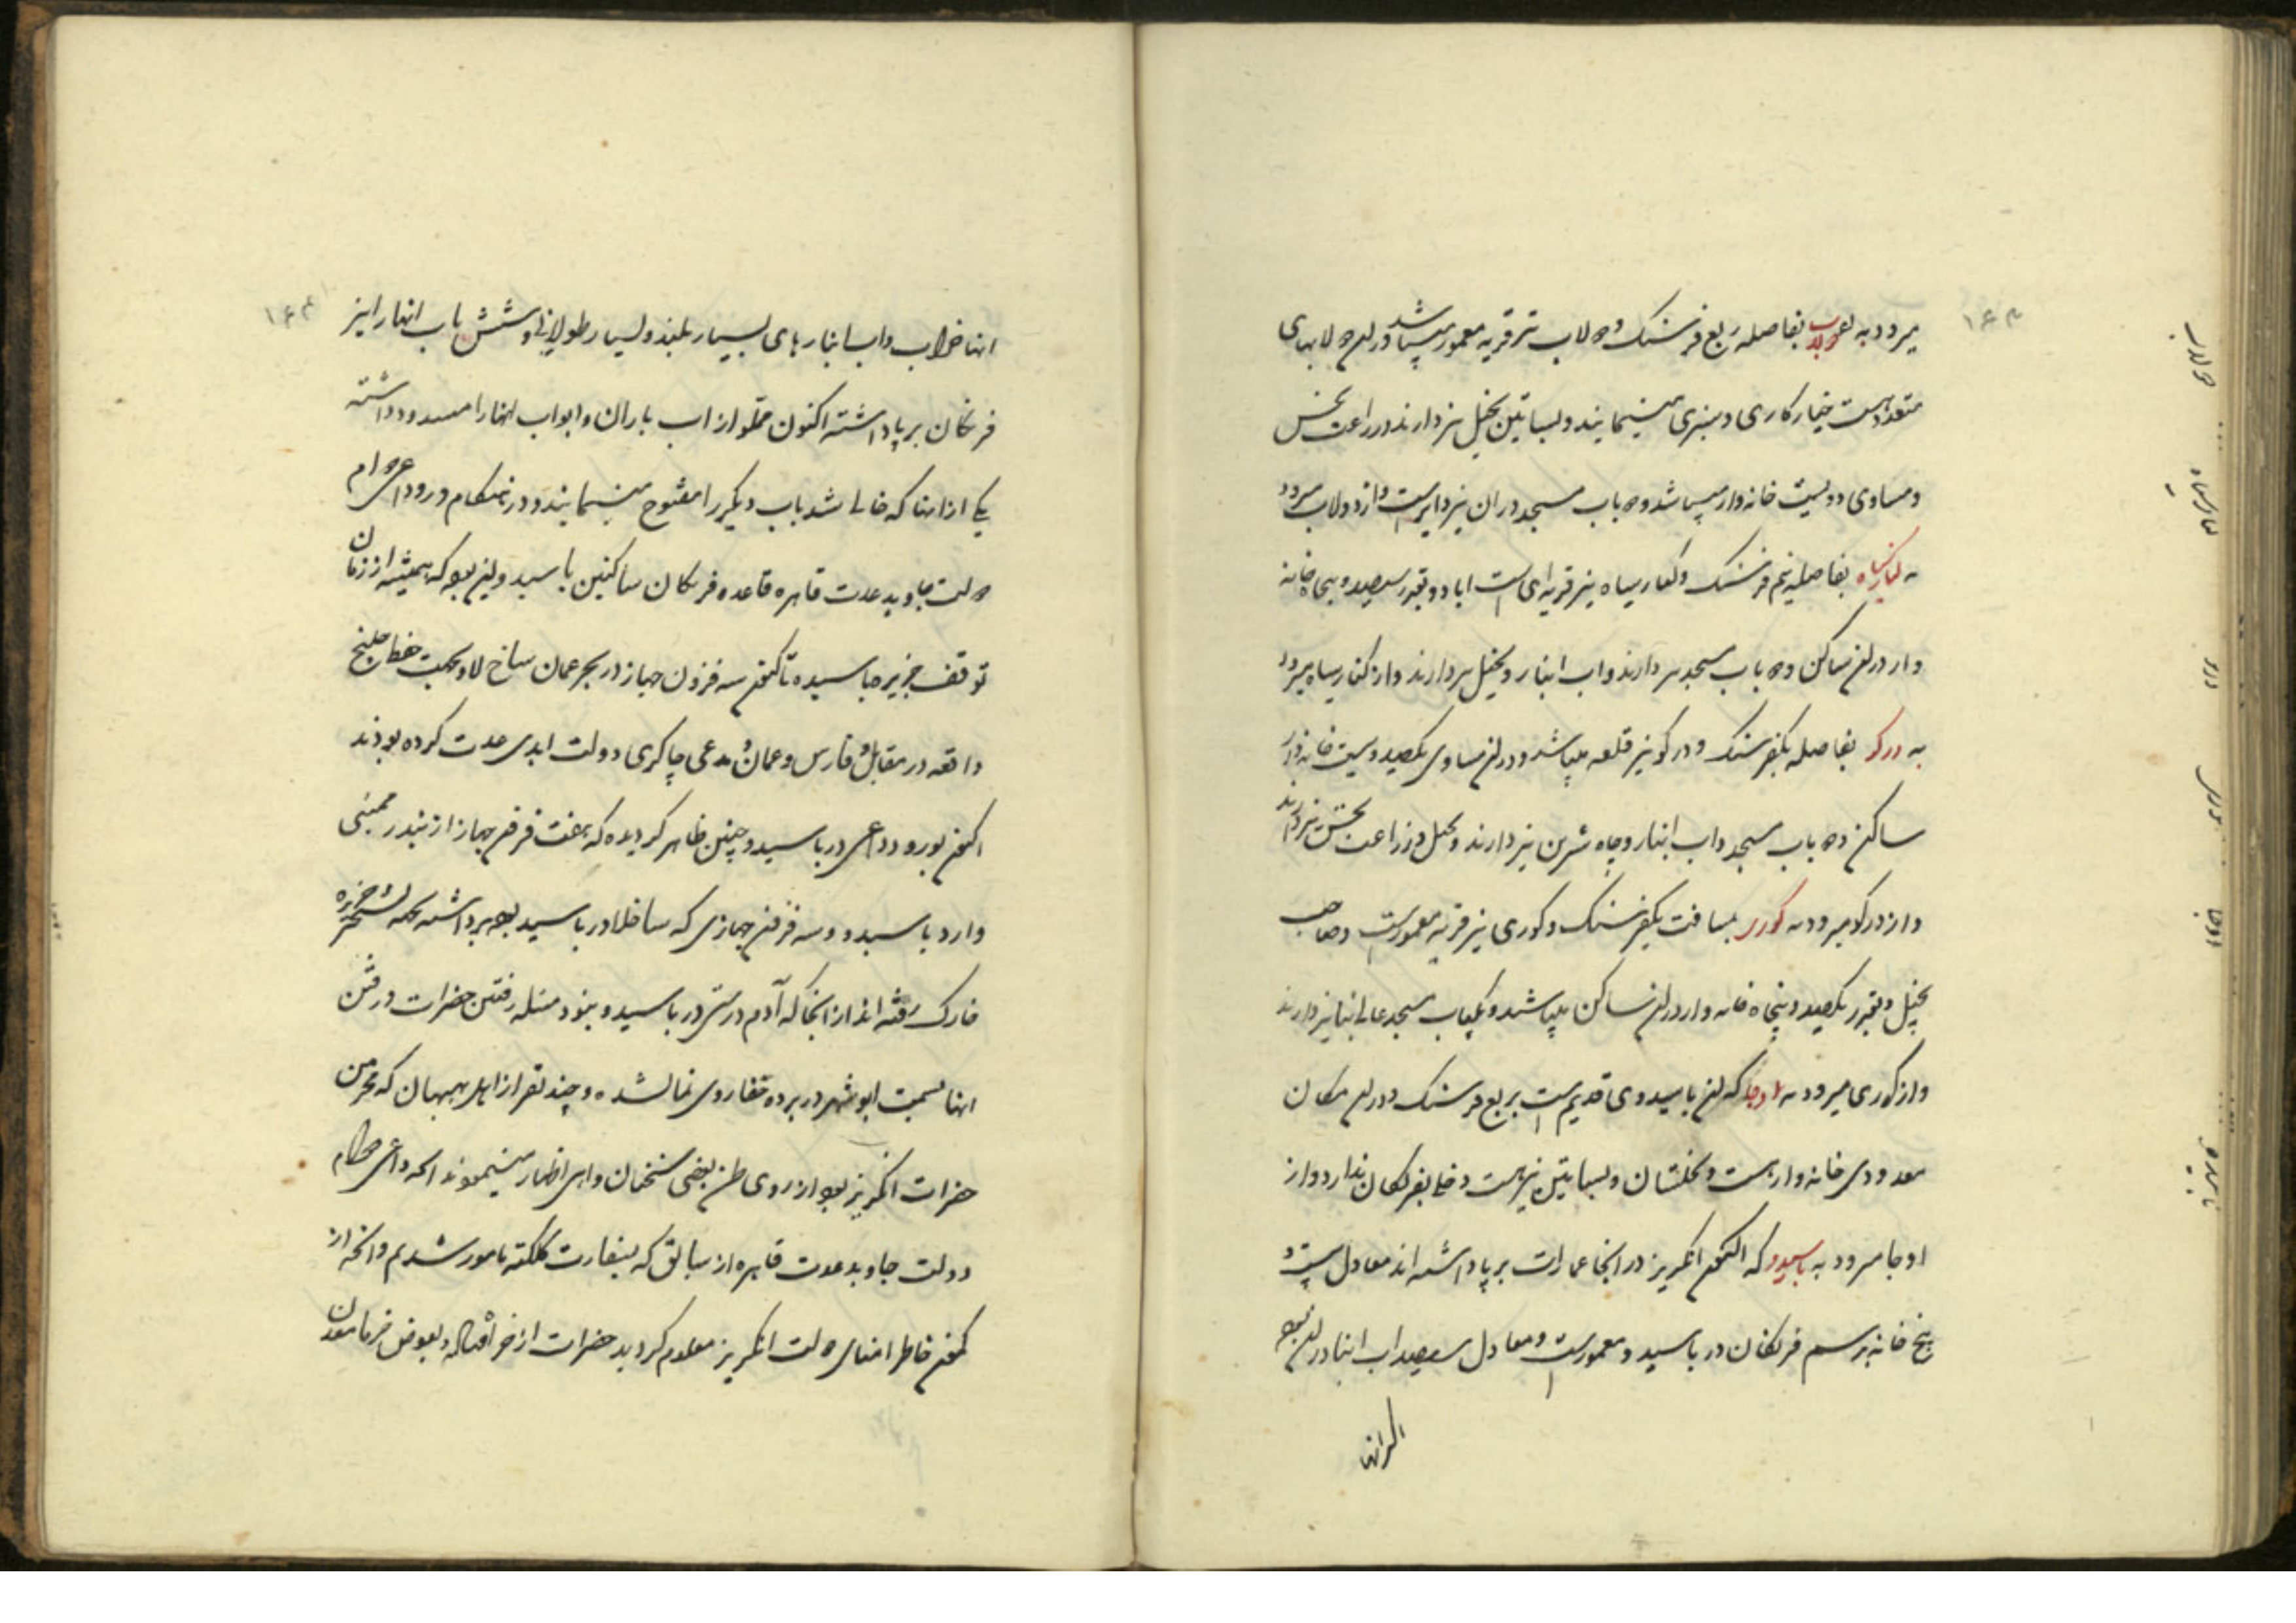 میرود به دولاب بفاصله ربع فرسنک و دولاب نیز قریه معمور میباشد و در ان دولابهای
متعدد هست خیارکاری و سبزی مینمایند و بساتین نخیل نیز دارند زراعت بخس
و مساوی دویست خانه وار میباشد و ده باب مسجد در ان نیز دایر است و از دولاب میرود
به کنارسیاه بفاصله نیم فرسنک و کنار سیاه نیز قریه ای است اباد و بقدر سیصد و پنجاه خانه
وار در ان ساکن و ده باب مسجد نیز دارند و اب انبار و نخیل نیز دارند و از کنار سیاه میرود
به درکو بفاصله یکفرسنک و درکو نیز قلعه میباشد و در ان مساوی یکصد و بیست خانه وار
ساکن و ده باب مسجد و اب انبار و چاه شیرین نیز دارند و نخیل و زراعت بخس نیز دارند
و از درکو میرود به کوری بمسافت یکفرسنک و کوری نیز قریه معموریست و صاحب
نخیل و بقدر یکصد و پنجاه خانه وار در ان ساکن میباشند و یکباب مسجد عالی بنا نیز دارند
و از کوری میرود به اوجا که ان باسیدوی قدیم است بربع فرسنک و در ان مکان
معدودی خانه وار هست و نخلستان و بساتین نیز هست دخلی بفرنکان ندارد و از
اوجا میرود به باسیدو که اکنون انکریز در انجا عمارت برپا داشته اند معادل بیست و
پنج خانه برسم فرنکان در باسیدو معموریست و معادل سیصد اب انبار در ان بوده
اکثر انها
انها خراب و اب انبارهای بسیار بلند و بسیار طولانی و شش باب انهار انیز
فرنکان برپا داشته اکنون مملو از اب باران و ابواب انها را مسدود داشته
یکی از انها که خالی شد باب دیکر را مفتوح مینمایند و در هنکام ورود داعی دوام
دولت جاوید عدت قاهره قاعده فرنکان ساکنین باسیدو این بود که همیشه از زمان
توقف جزیره باسیدو تا کنون سه فروند جهاز در بحر عمان ساخلاو بجهت حفظ خلیج
واقعه در مقابل فارس و عمان و مدعی چاکری دولت ابدی عدت کرده بودند
اکنون بورود داعی در باسیدو چنین ظاهر کردیده که هفت فروند جهاز از بندر ممبئی
وارد باسیدو و سه فروند جهازی که ساخلاو در باسیدو بوده برداشته بجهة تسخیر جزیره
خارک رفته اند از انجا که آدم درستی در باسیدو نبود مسئله رفتن حضرات و رفتن
انها بسمت ابوشهر در پرده خفا روی نما نشده و چند نفر از اهل بهبهان که محرمین
حضرات انکریز بود از روی ظن بعضی سخنان واهی اظهار مینمودند انچه داعی دوام
دولت جاوید عدت قاهره از سابق که بسفارت کلکته مامور شدیم و انچه از
مکنون خاطر امنای دولت انکریز معلوم کردید حضرات از خیر اقباله و بعوض فرمانمودن
۱۶۳
۱۶۴
دولاب
کنارسیاه
درکو
کوری
اوجا
باسیدو